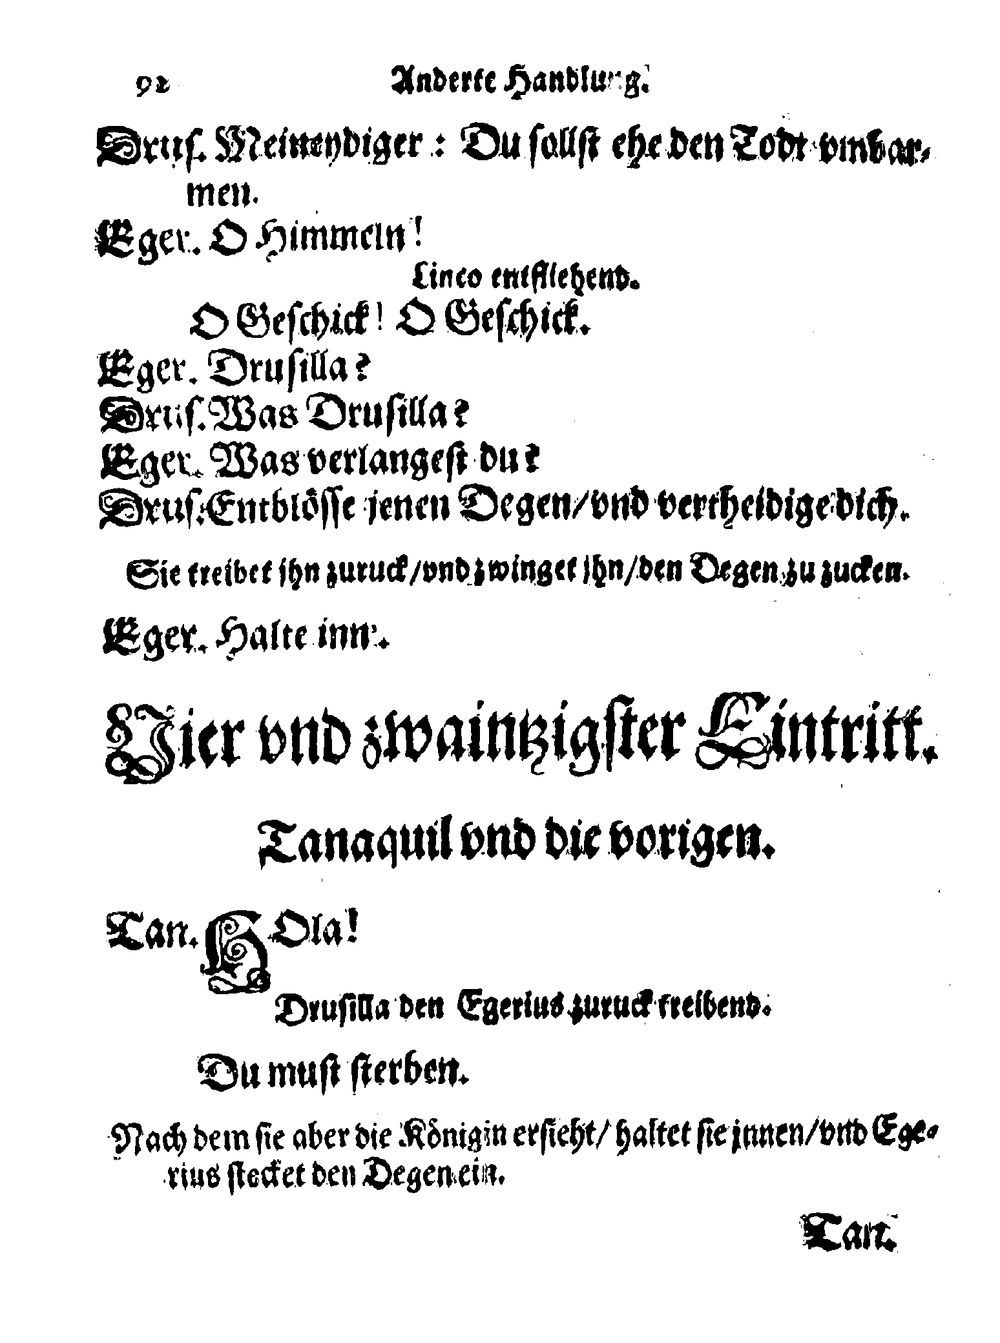 92 Anderte Handlung.
Drus. Meineydiger : Du sollst ehe den Todt vmbar-
men.
Eger. O Himmeln!
Linco entfliehend.
O Geschick! O Geschick.
Eger. Drusilla?
Drus. Was Drusilla?
Eger. Was verlangest du?
Drus. Entblösse jenen Degen/vnd vertheidige dich.
Sie treibet jhn zuruck/vnd zwinget jhn/den Degen zu zucken.
Eger. Halte inn.
Vier vnd zwaintzigster Eintritt.
Tanaquil vnd die vorigen.
Tan. HOla!
Drusilla den Egerius zuruck treibend.
Du must sterben.
Nach dem sie aber die Königin ersieht/ haltet sie jnnen/vnd Ege-
rius stecket den Degen ein.
Tan.